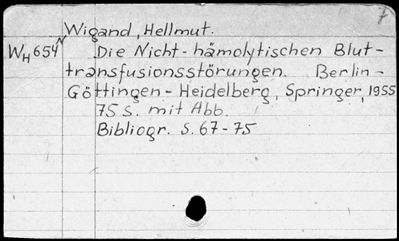 Wigand, Hellmut.
WH654 Die Nicht-hämolytischen Blut-
transfusionsstörungen. Berlin-
Göttingen-Heidelberg, Springer, 1955
75 S. mit Abb.
Bibliogr. S. 67-75